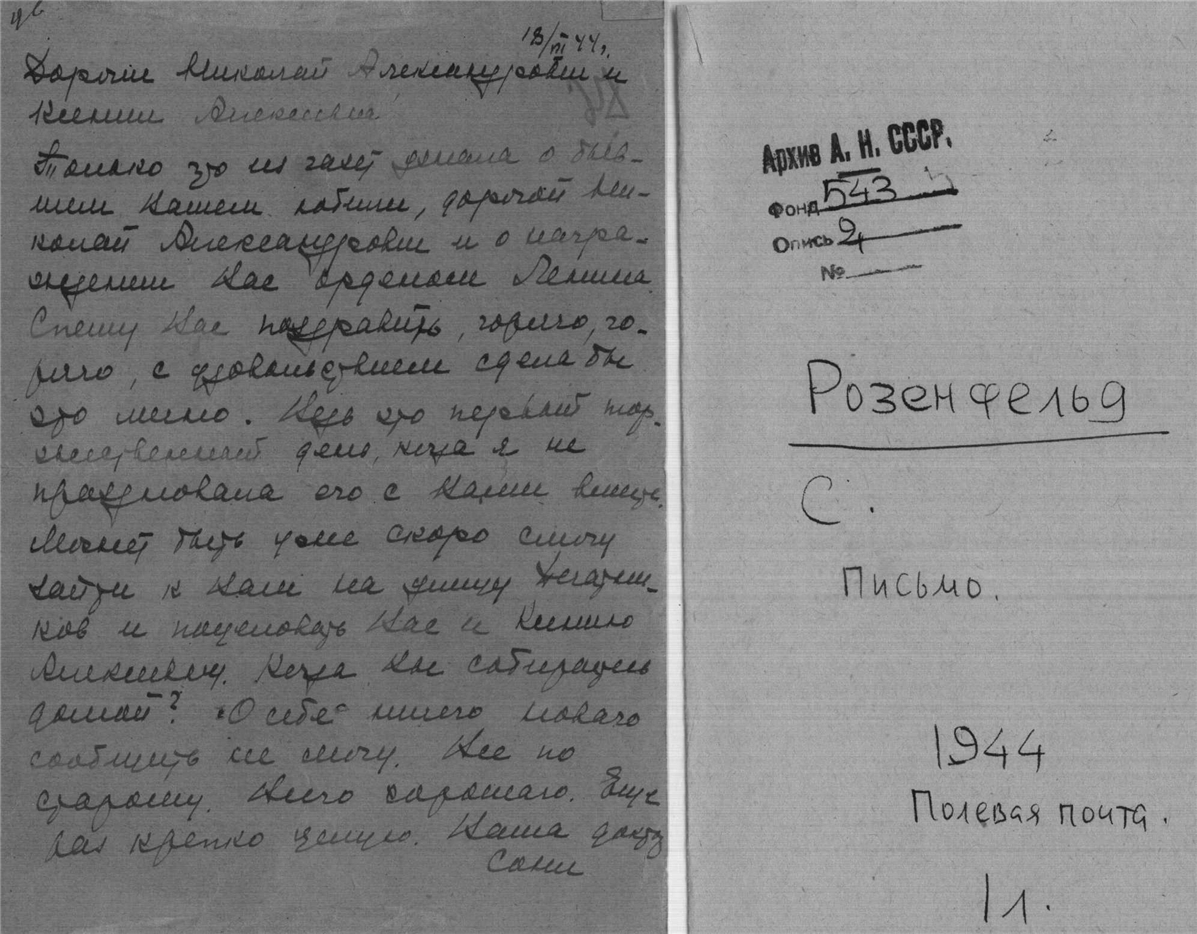 18/VI 44 г.
Дорогие Николай Александрович и
Ксения Алексеевна
Только что из газет узнала о быв-
шем Вашем юбилее, дорогой Ни-
колай Александрович и о награ-
ждении Вас орденом Ленина.
Спешу Вас поздравить, горячо, го-
рячо, с удовольствием сделала бы
это лично. Ведь это первый тор-
жественный день, когда я не
праздновала его с Вами вместе.
Может быть уже скоро смогу
зайти к Вам на улицу
и поцеловать Вас и Ксению
Алексеевну. Когда Вы собираетесь
домой? О себе ничего нового
сообщить не могу. Все по
старому. Ничего хорошего. Еще
раз крепко целую. Ваша
Соня
Архив А. Н. СССР.
Фонд 543
Опись 2
№
Розенфельд
С.
Письмо.
1944
Полевая почта.
1 л.